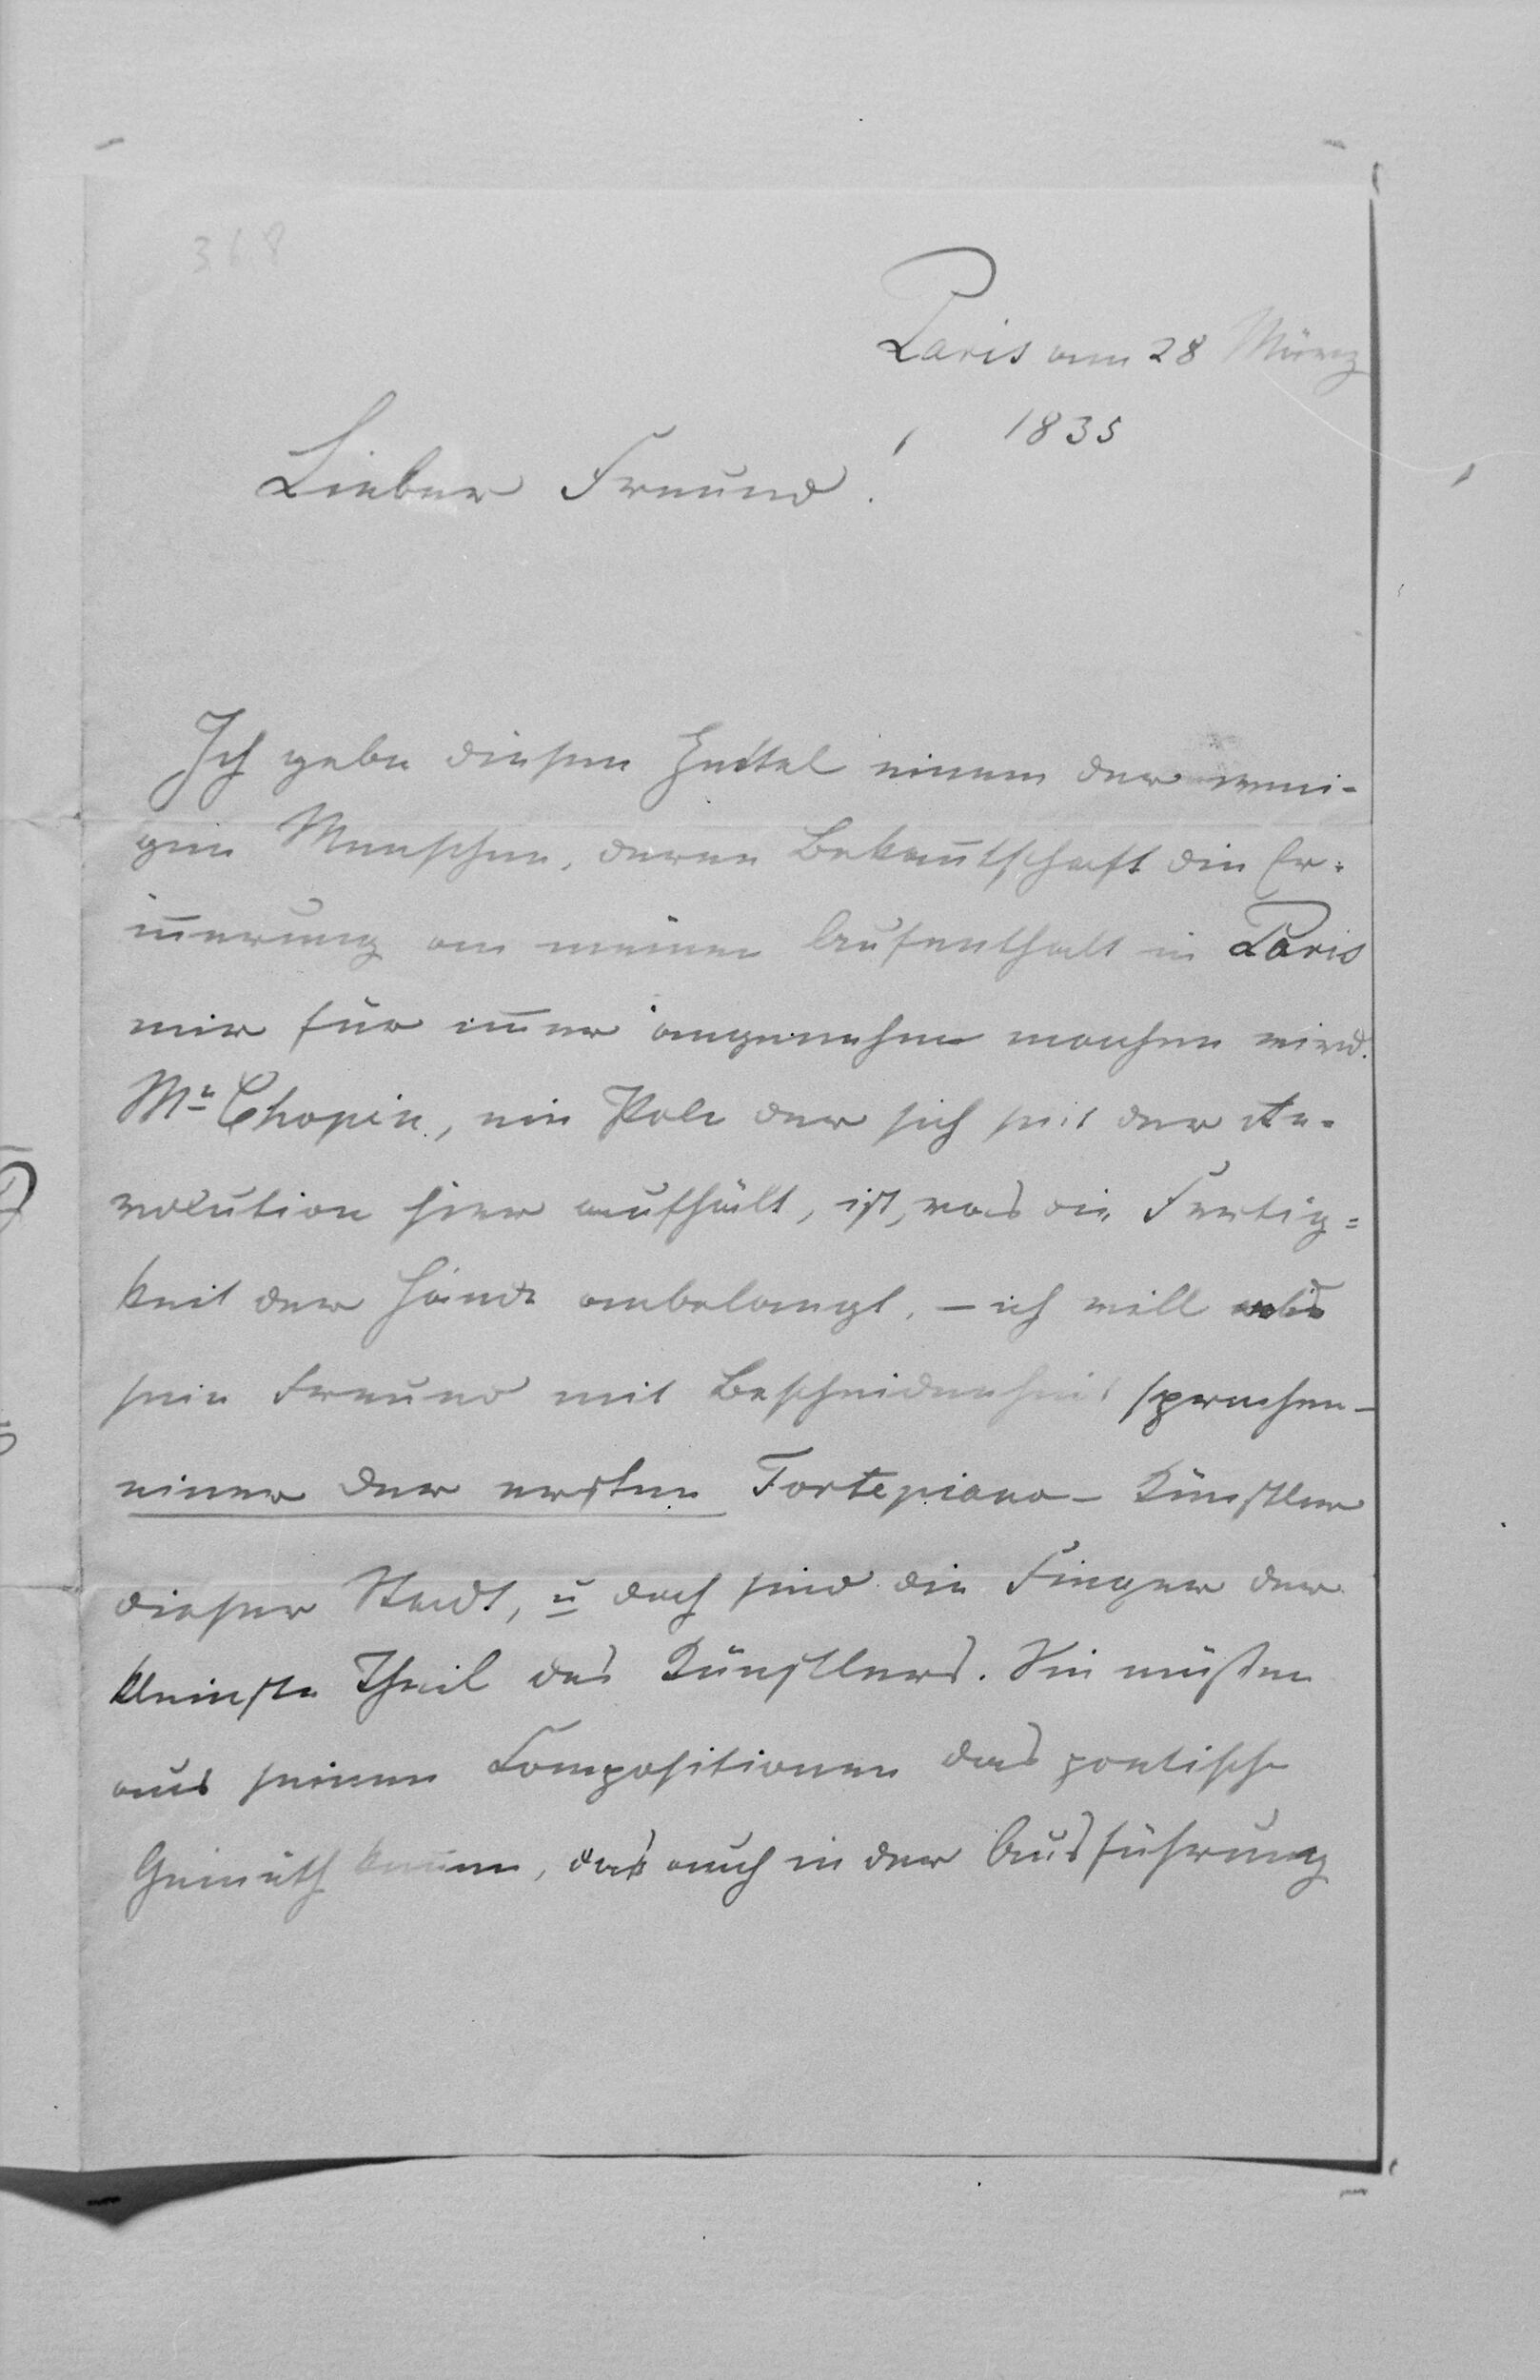 368
Paris am 28 März
1835
Lieber Freund!
Ich gebe diesen Zettel einem der weni-
gen Menschen, deren Bekan̄tschaft die Er-
in̄erung an meinen Aufenthalt in Paris
mir für im̄er angenehm machen wird.
Mr Chopin, ein Pole der sich seit der Re-
volution hier aufhält, ist, was die Fertig=
keit der Hände anbelangt, – ich will als
sein Freund mit Bescheidenheit sprechen –
einer der ersten Fortepiano-Künstler
dieser Stadt, u doch sind die Finger der
kleinste Theil des Künstlers. Sie müßen
aus seinen Compositionen das poetische
Gemüth ken̄en, das auch in der Ausführung